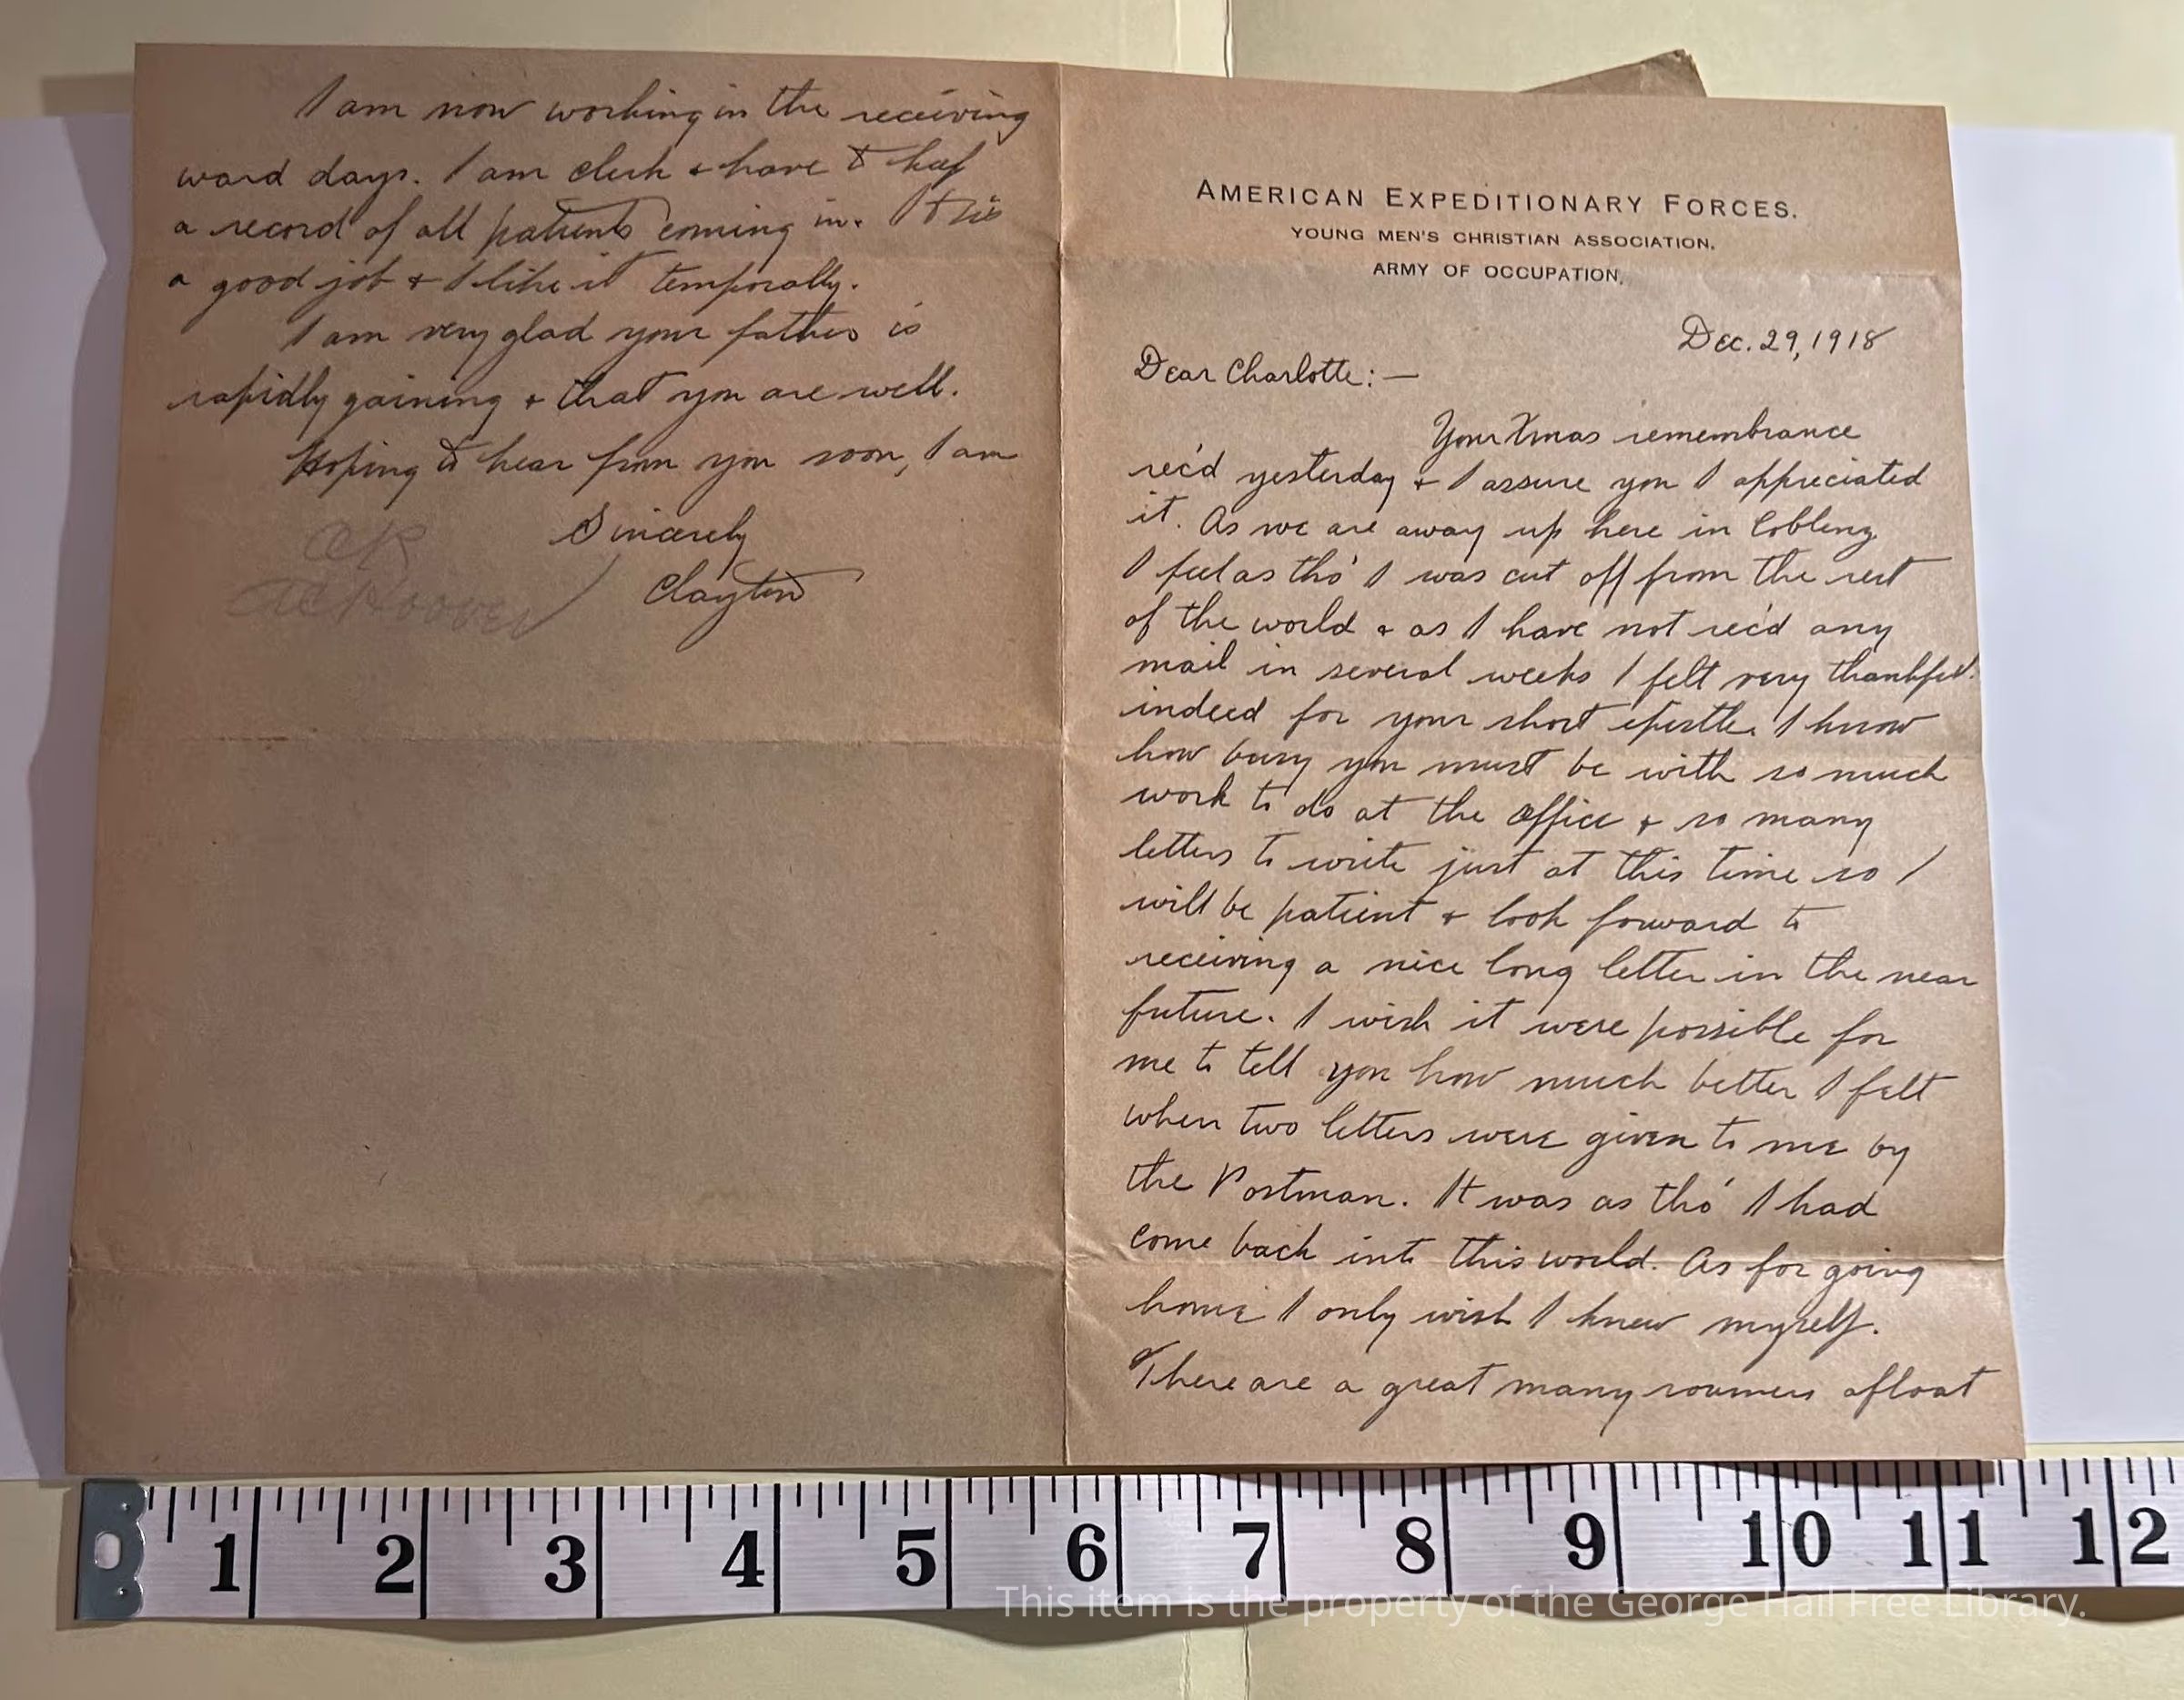 AMERICAN EXPEDITIONARY FORCES.
YOUNG MEN'S CHRISTIAN ASSOCIATION.
ARMY OF OCCUPATION.
Dec. 29, 1918
Dear Charlotte: —
Your Xmas remembrance
rec'd yesterday & I assure you I appreciated
it. As we are away up here in Coblenz
I feel as tho' I was cut off from the rest
of the world & as I have not rec'd any
mail in several weeks I felt very thankful
indeed for your short epistle. I know
how busy you must be with so much
work to do at the office & so many
letters to write just at this time so I
will be patient & look forward to
receiving a nice long letter in the near
future. I wish it were possible for
me to tell you how much better I felt
when two letters were given to me by
the Postman. It was as tho' I had
come back into this world. As for going
home I only wish I knew myself.
There are a great many roumers afloat
I am now working in the receiving
ward days. I am clerk & have to keep
a record of all patients coming in. It is
a good job & I like it temporally.
I am very glad your father is
rapidly gaining & that you are well.
Hoping to hear from you soon, I am
Sincerely
Clayton
OK
Hoover
1 2 3 4 5 6 7 8 9 10 11 12
This item is the property of the George Hail Free Library.